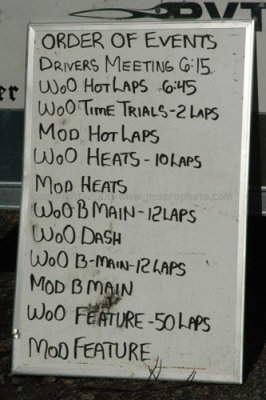 ORDER OF EVENTS
DRIVERS MEETING 6:15
WoO HOT LAPS 6:45
WoO TIME TRIALS-2 LAPS
MOD HOT LAPS
WoO HEATS-10 LAPS
MOD HEATS
WoO B MAIN-12 LAPS
WoO DASH
WoO B-MAIN-12 LAPS
MOD B MAIN
WoO FEATURE-50 LAPS
MOD FEATURE